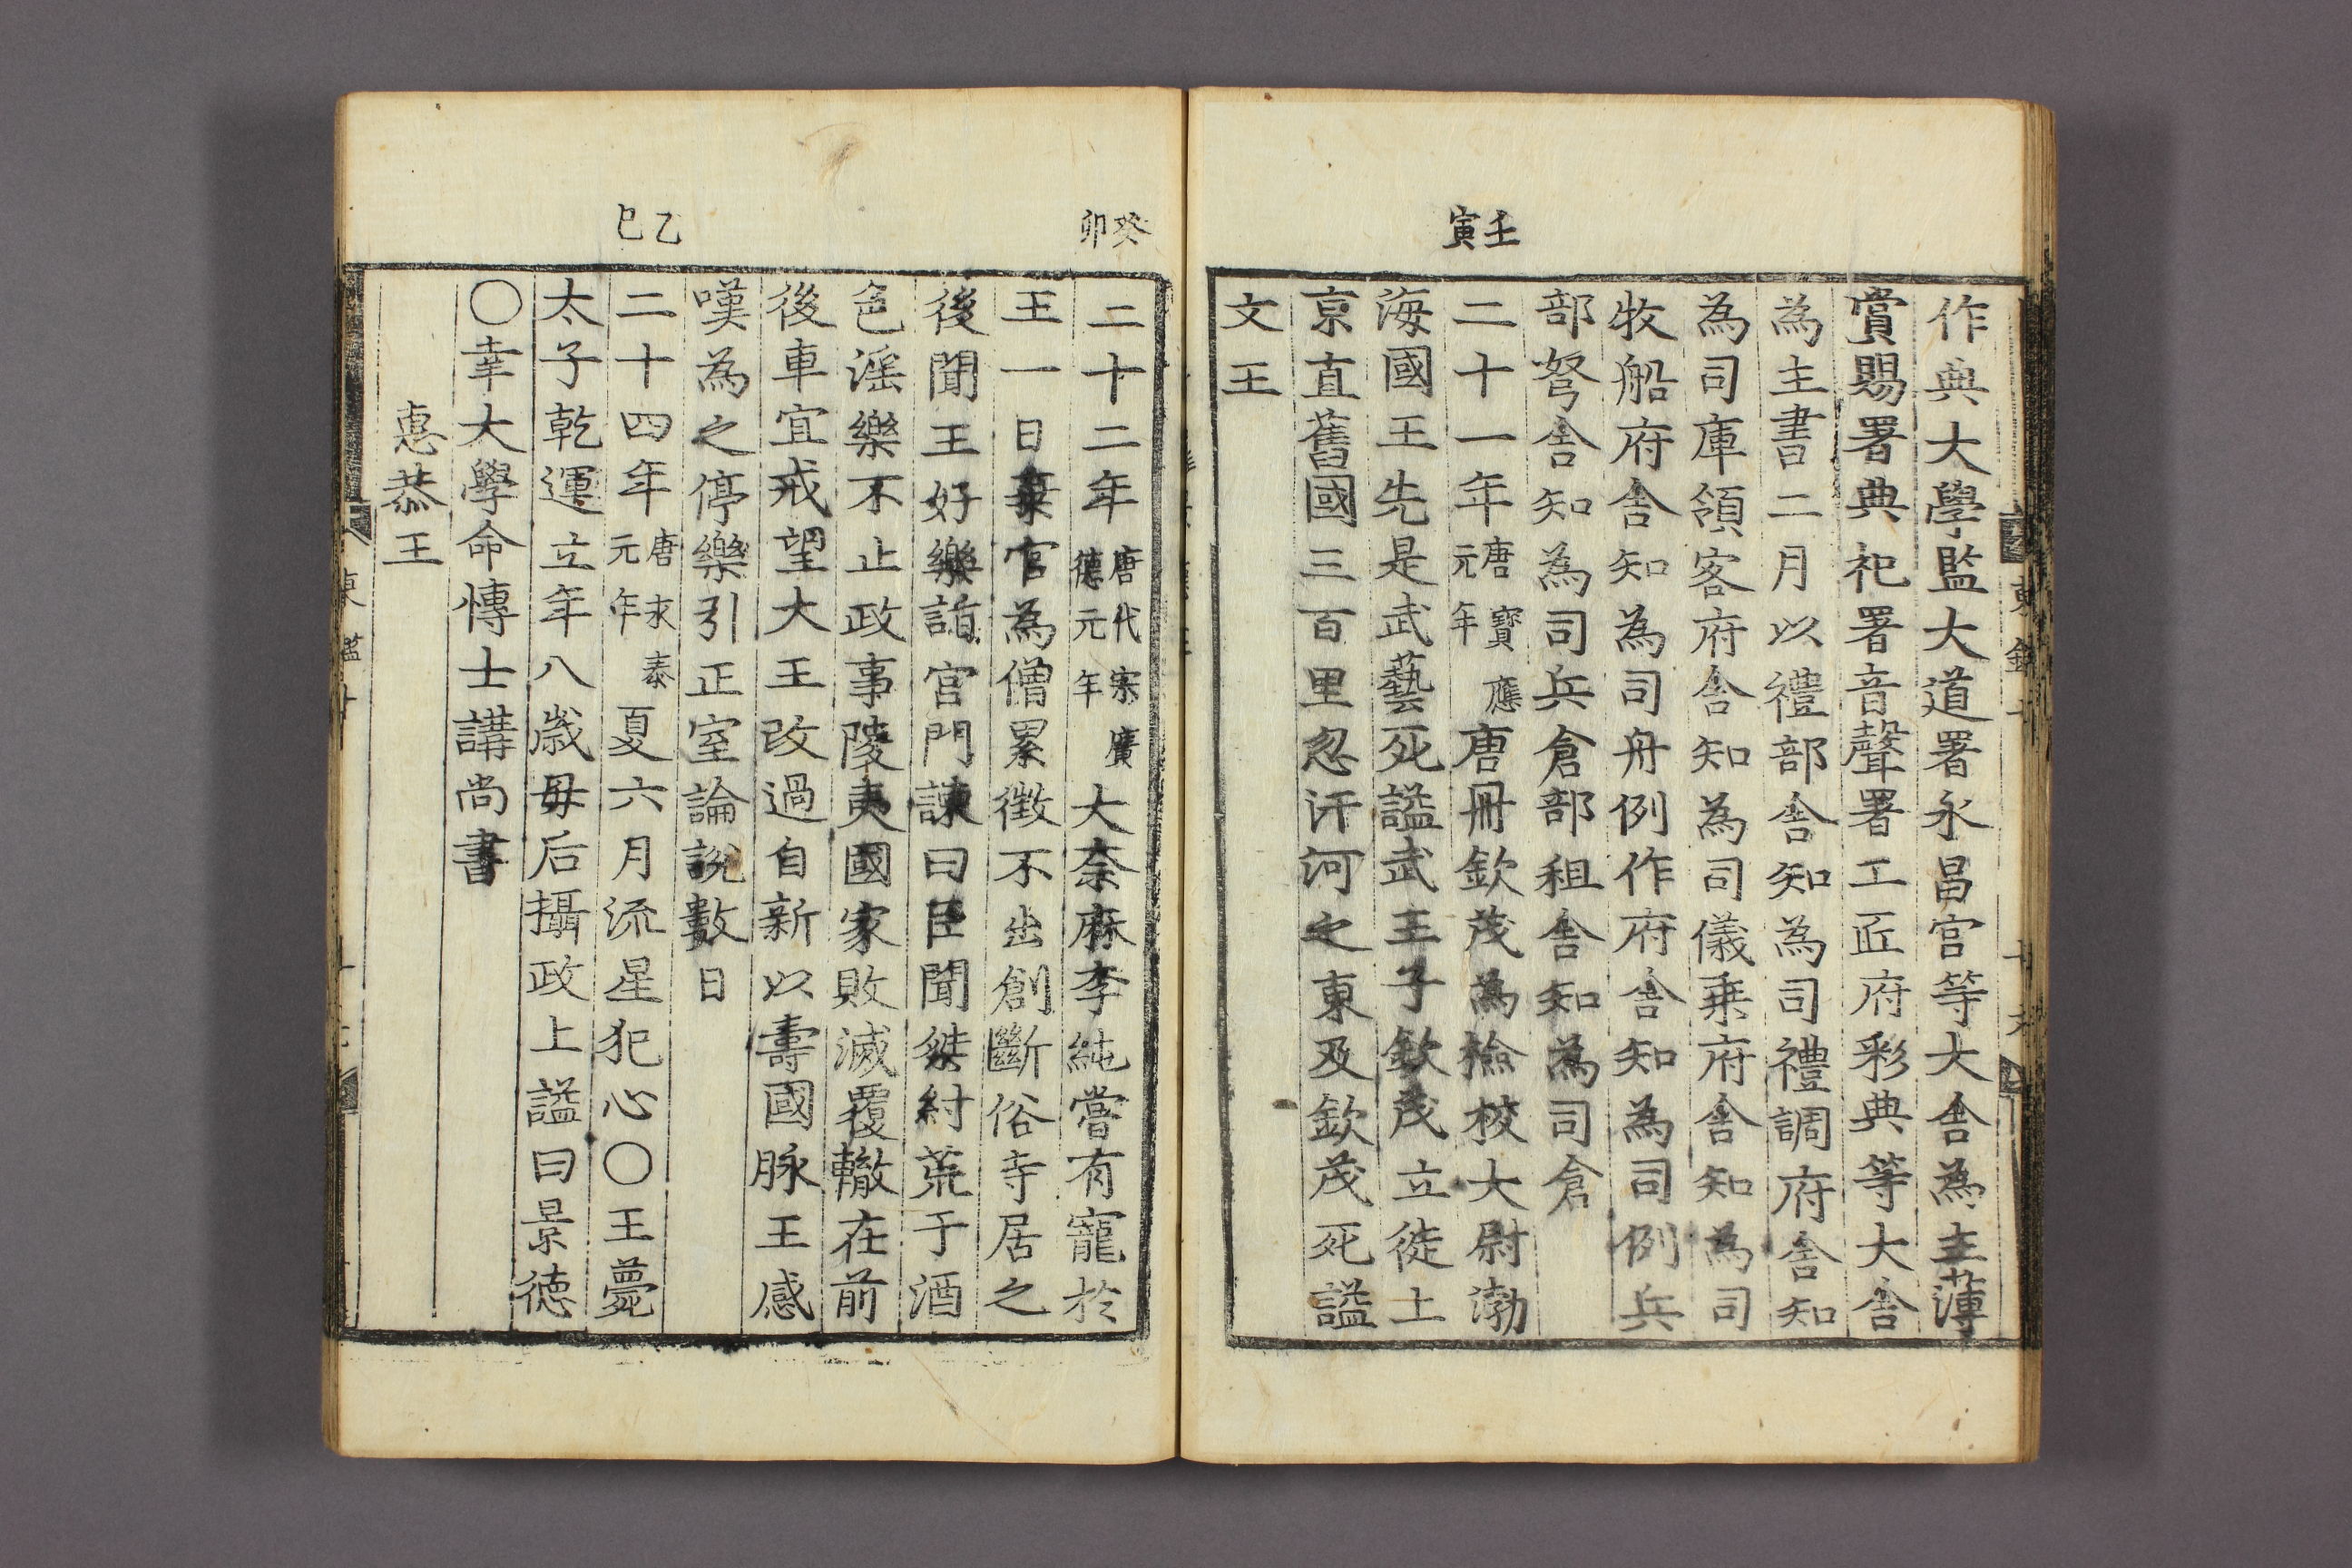 壬寅
作典大學監大道署永昌宮等大舍為主薄
賞賜署典祀署音聲署工匠府彩典等大舍
為主書二月以禮部舍知為司禮調府舍知
為司庫領客府舍知為司儀乗府舍知為司
牧船府舍知為司舟例作府舍知為司例兵
部弩舍知為司兵倉部租舍知為司倉
二十一年唐寶應元年唐冊欽茂為檢校大尉渤
海國王先是武藝死謚武王子欽茂立徙上
京直舊國三百里忽汗河之東及欽茂死謚
文王
癸卯
乙巳
二十二年唐代宗廣德元年大奈麻李純嘗有寵於
王一日棄官為僧累徵不出創斷俗寺居之
後聞王好樂詣宮門諫曰臣聞桀紂荒于酒
色淫樂不止政事陵夷國家敗滅覆轍在前
後車宜戒望大王改過自新以壽國脉王感
嘆為之停樂引正室論說數日
二十四年唐永泰元年夏六月流星犯心○王薨
太子乾運立年八歲毋后攝政上謚曰景德
○幸大學命愽士講尚書
惠恭王